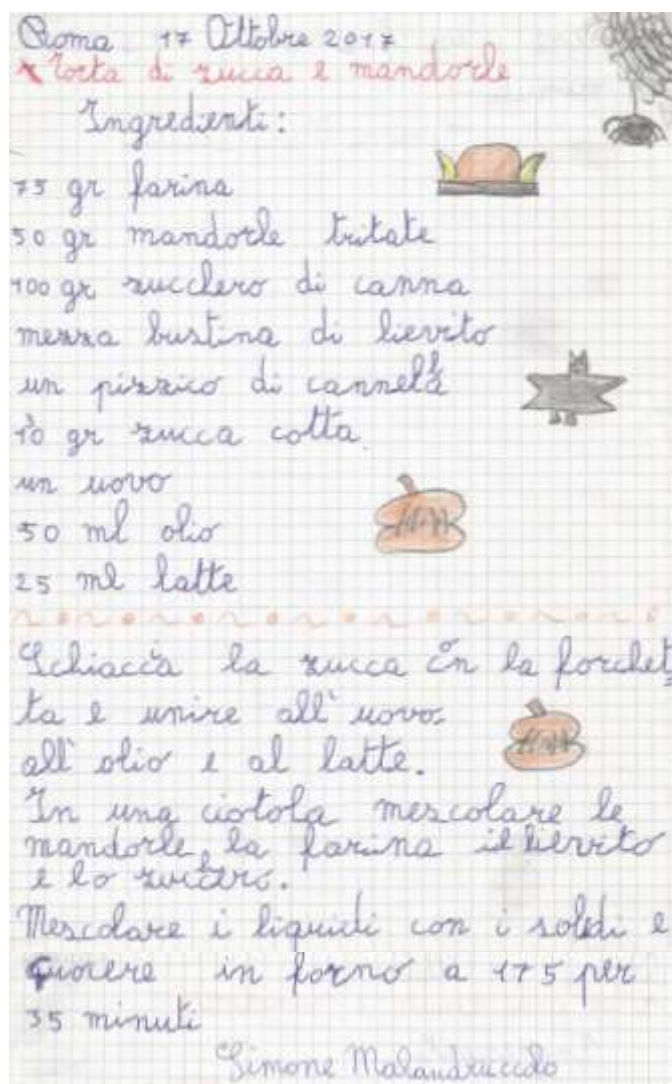 Roma 17 Ottobre 2017
Torta di zucca e mandorle
Ingredienti:
75 gr farina
50 gr mandorle tritate
100 gr zucchero di canna
mezza bustina di lievito
un pizzico di cannella
10 gr zucca cotta
un uovo
50 ml olio
25 ml latte
Schiaccia la zucca con la forchet
ta e unire all'uovo
all'olio e al latte.
In una ciotola mescolare le
mandorle, la farina il lievito
e lo zucchero.
Mescolare i liquidi con i solidi e
quocere in forno a 175 per
35 minuti
Simone